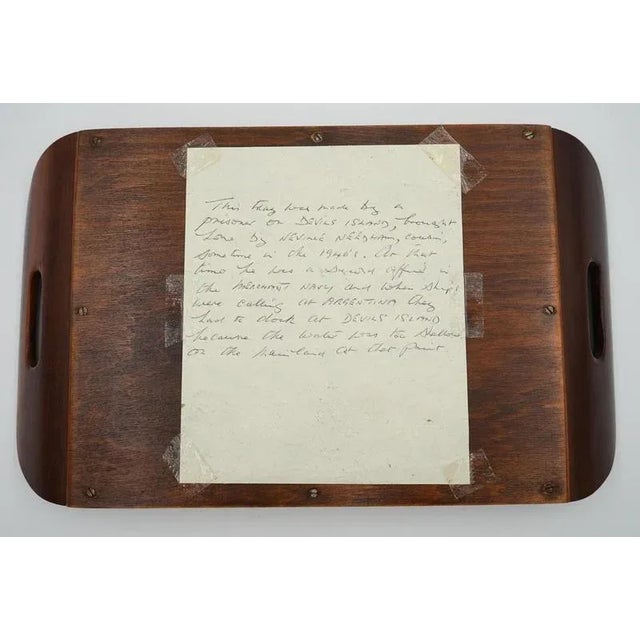 This tray was made by a
prisoner on DEVILS ISLAND, brought
home by NEVILLE NEEDHAM, cousin,
sometime in the 1940's. At that
time he was a second officer in
the MERCHANT NAVY and when ships
were calling at ARGENTINA they
had to dock at DEVILS ISLAND
because the water was too shallow
on the mainland at that point